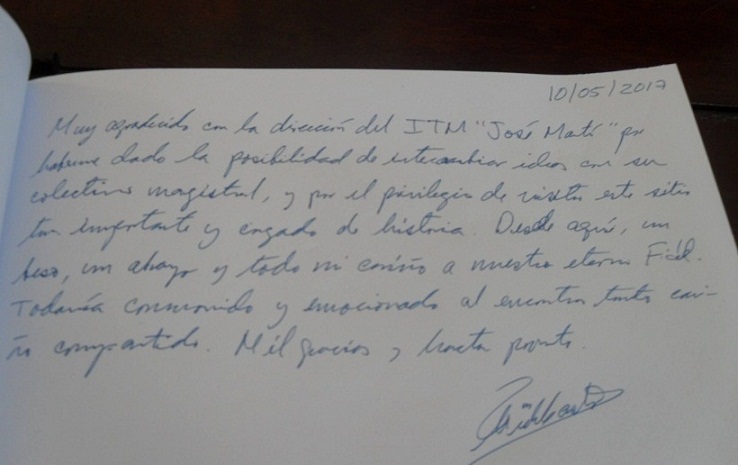 10/05/2017
Muy agradecido con la dirección del ITM "José Martí" por
haberme dado la posibilidad de intercambiar ideas con su
colectivo magistral, y por el privilegio de visitar este sitio
tan importante y cargado de historia. Desde aquí, un
beso, un abrazo y todo mi cariño a nuestro eterno Fidel.
Todavía conmovido y emocionado al encontrar tanto cari-
ño compartido. Mil gracias y hasta pronto.